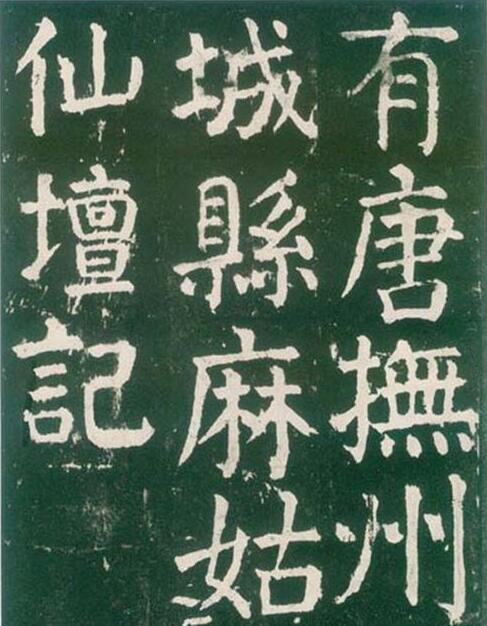 有唐撫州
城縣麻姑
仙壇記